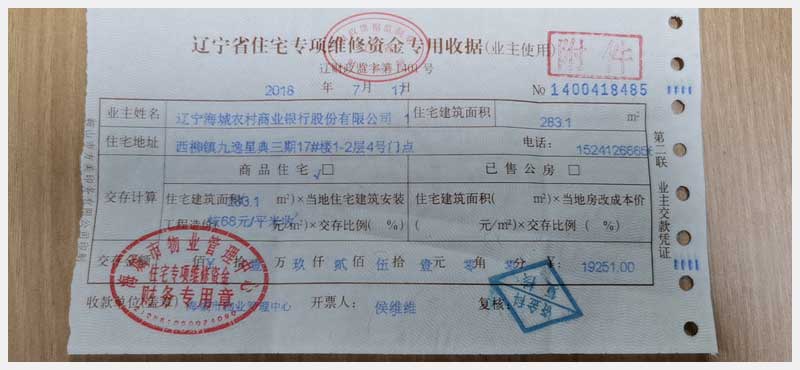 辽宁省住宅专项维修资金专用收据(业主使用)
附件
辽财政监字第1401号
2018 年 7 月 1 日
No 1400418485
业主姓名 辽宁海城农村商业银行股份有限公司 住宅建筑面积 283.1 m²
住宅地址 西柳镇九逸星典三期17#楼1-2层4号门点 电话: 15241266656
商品住宅 □ 已售公房 □
交存计算 住宅建筑面积( 283.1 m²)×当地住宅建筑安装 住宅建筑面积( m²)×当地房改成本价
工程造价 按68元/平米收 元/m²)×交存比例( %) ( 元/m²)×交存比例( %)
交存金额 佰 ¥ 拾 壹 万 玖 仟 贰 佰 伍 拾 壹 元 零 角 零 分 ¥: 19251.00
收款单位(盖章) 海城市物业管理中心 开票人: 侯维维 复核:
第二联 业主交款凭证
海城市物业管理中心
住宅专项维修资金
财务专用章